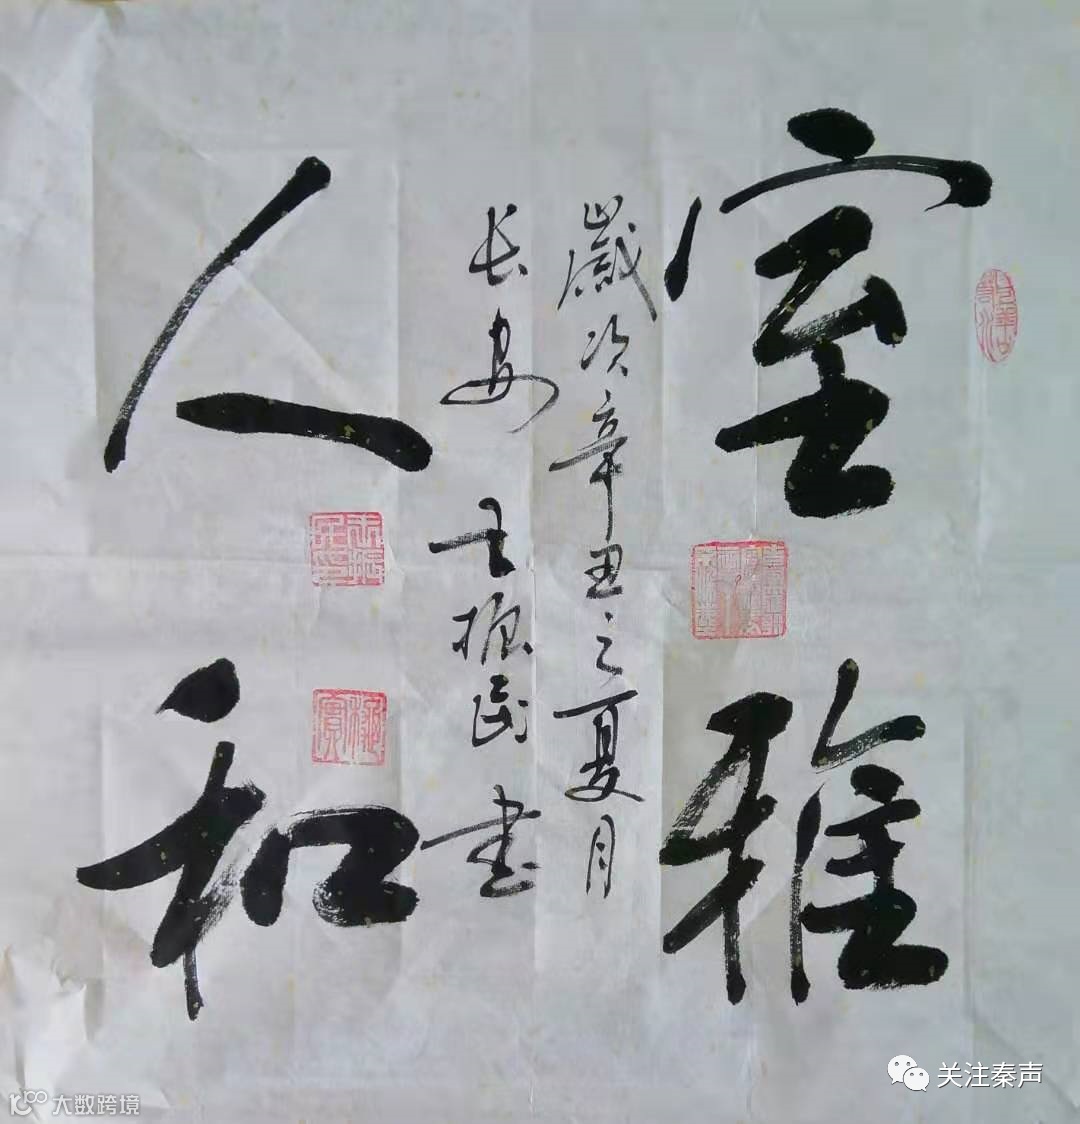 室雅
人和
歲次辛丑之夏月
长安王振民书
关注秦声
大数跨境